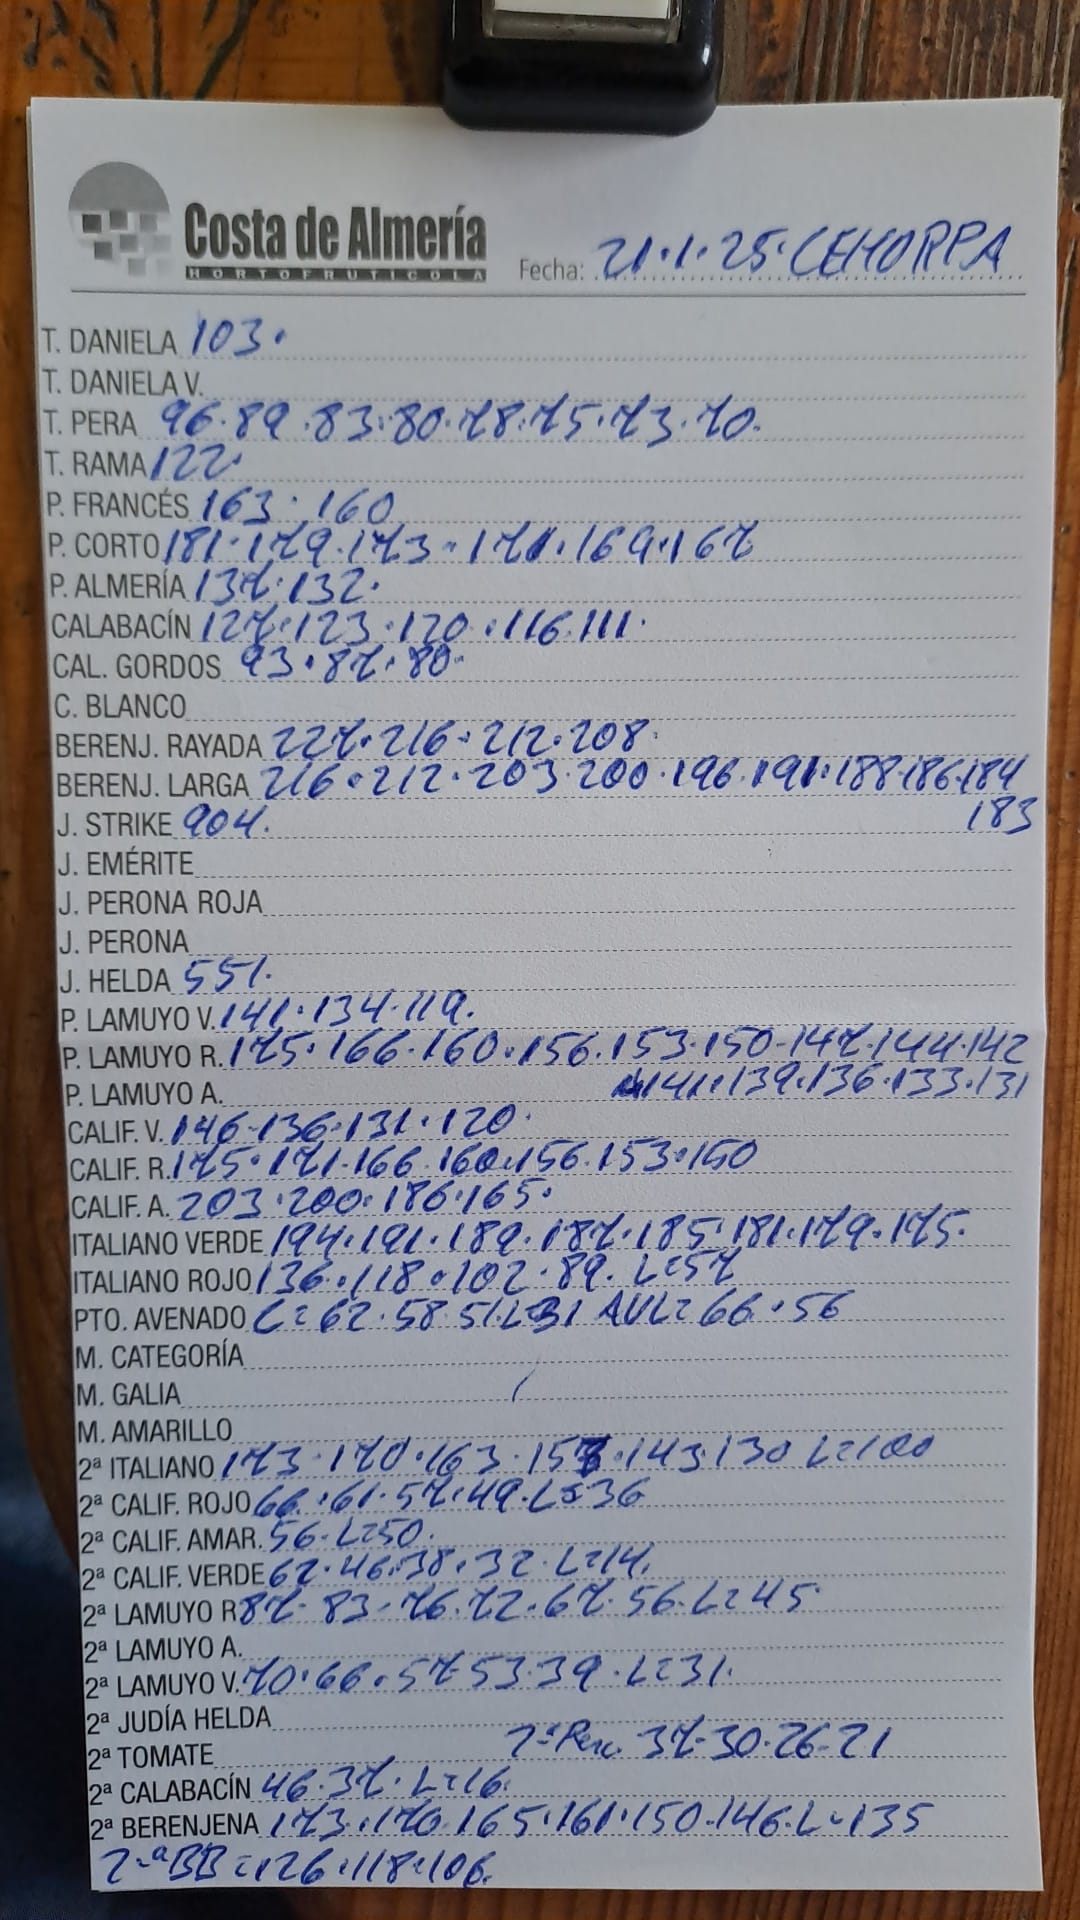 Costa de Almería
HORTOFRUTICOLA
Fecha: 21.1.25. CEHORPA
T. DANIELA 103.
T. DANIELA V.
T. PERA 96.89.83.80.78.75.73.70.
T. RAMA 122.
P. FRANCÉS 163.160
P. CORTO 181.179.173.171.169.167
P. ALMERÍA 137.132.
CALABACÍN 127.123.120.116.111.
CAL. GORDOS 93.87.80.
C. BLANCO
BERENJ. RAYADA 227.216.212.208.
BERENJ. LARGA 216.212.203.200.196.191.188.186.184
183
J. STRIKE 904.
J. EMÉRITE
J. PERONA ROJA
J. PERONA
J. HELDA 551.
P. LAMUYO V. 141.134.119.
P. LAMUYO R. 175.166.160.156.153.150-147.144.142
141.139.136.133.131
P. LAMUYO A.
CALIF. V. 146.136.131.120.
CALIF. R. 175.171.166.160.156.153.150
CALIF. A. 203.200.186.165.
ITALIANO VERDE 194.191.189.187.185.181.179.175.
ITALIANO ROJO 136.118.102.89. L=57
PTO. AVENADO L=62.58.51. L=31 AVL=66.56
M. CATEGORÍA
M. GALIA
M. AMARILLO
2ª ITALIANO 173.170.163.157.143.130 L=100
2ª CALIF. ROJO 66.61.57.49. L=36
2ª CALIF. AMAR. 56. L=50.
2ª CALIF. VERDE 62.46.38.32. L=14.
2ª LAMUYO R 87.83.76.72.67.56. L=45.
2ª LAMUYO A.
2ª LAMUYO V. 70.66.57.53.39. L=31.
2ª JUDÍA HELDA
2ª TOMATE 2ª Pera 37.30.26.21
2ª CALABACÍN 46.37. L=16.
2ª BERENJENA 173.170.165.161.150.146. L=135
2ª BB=126.118.106.